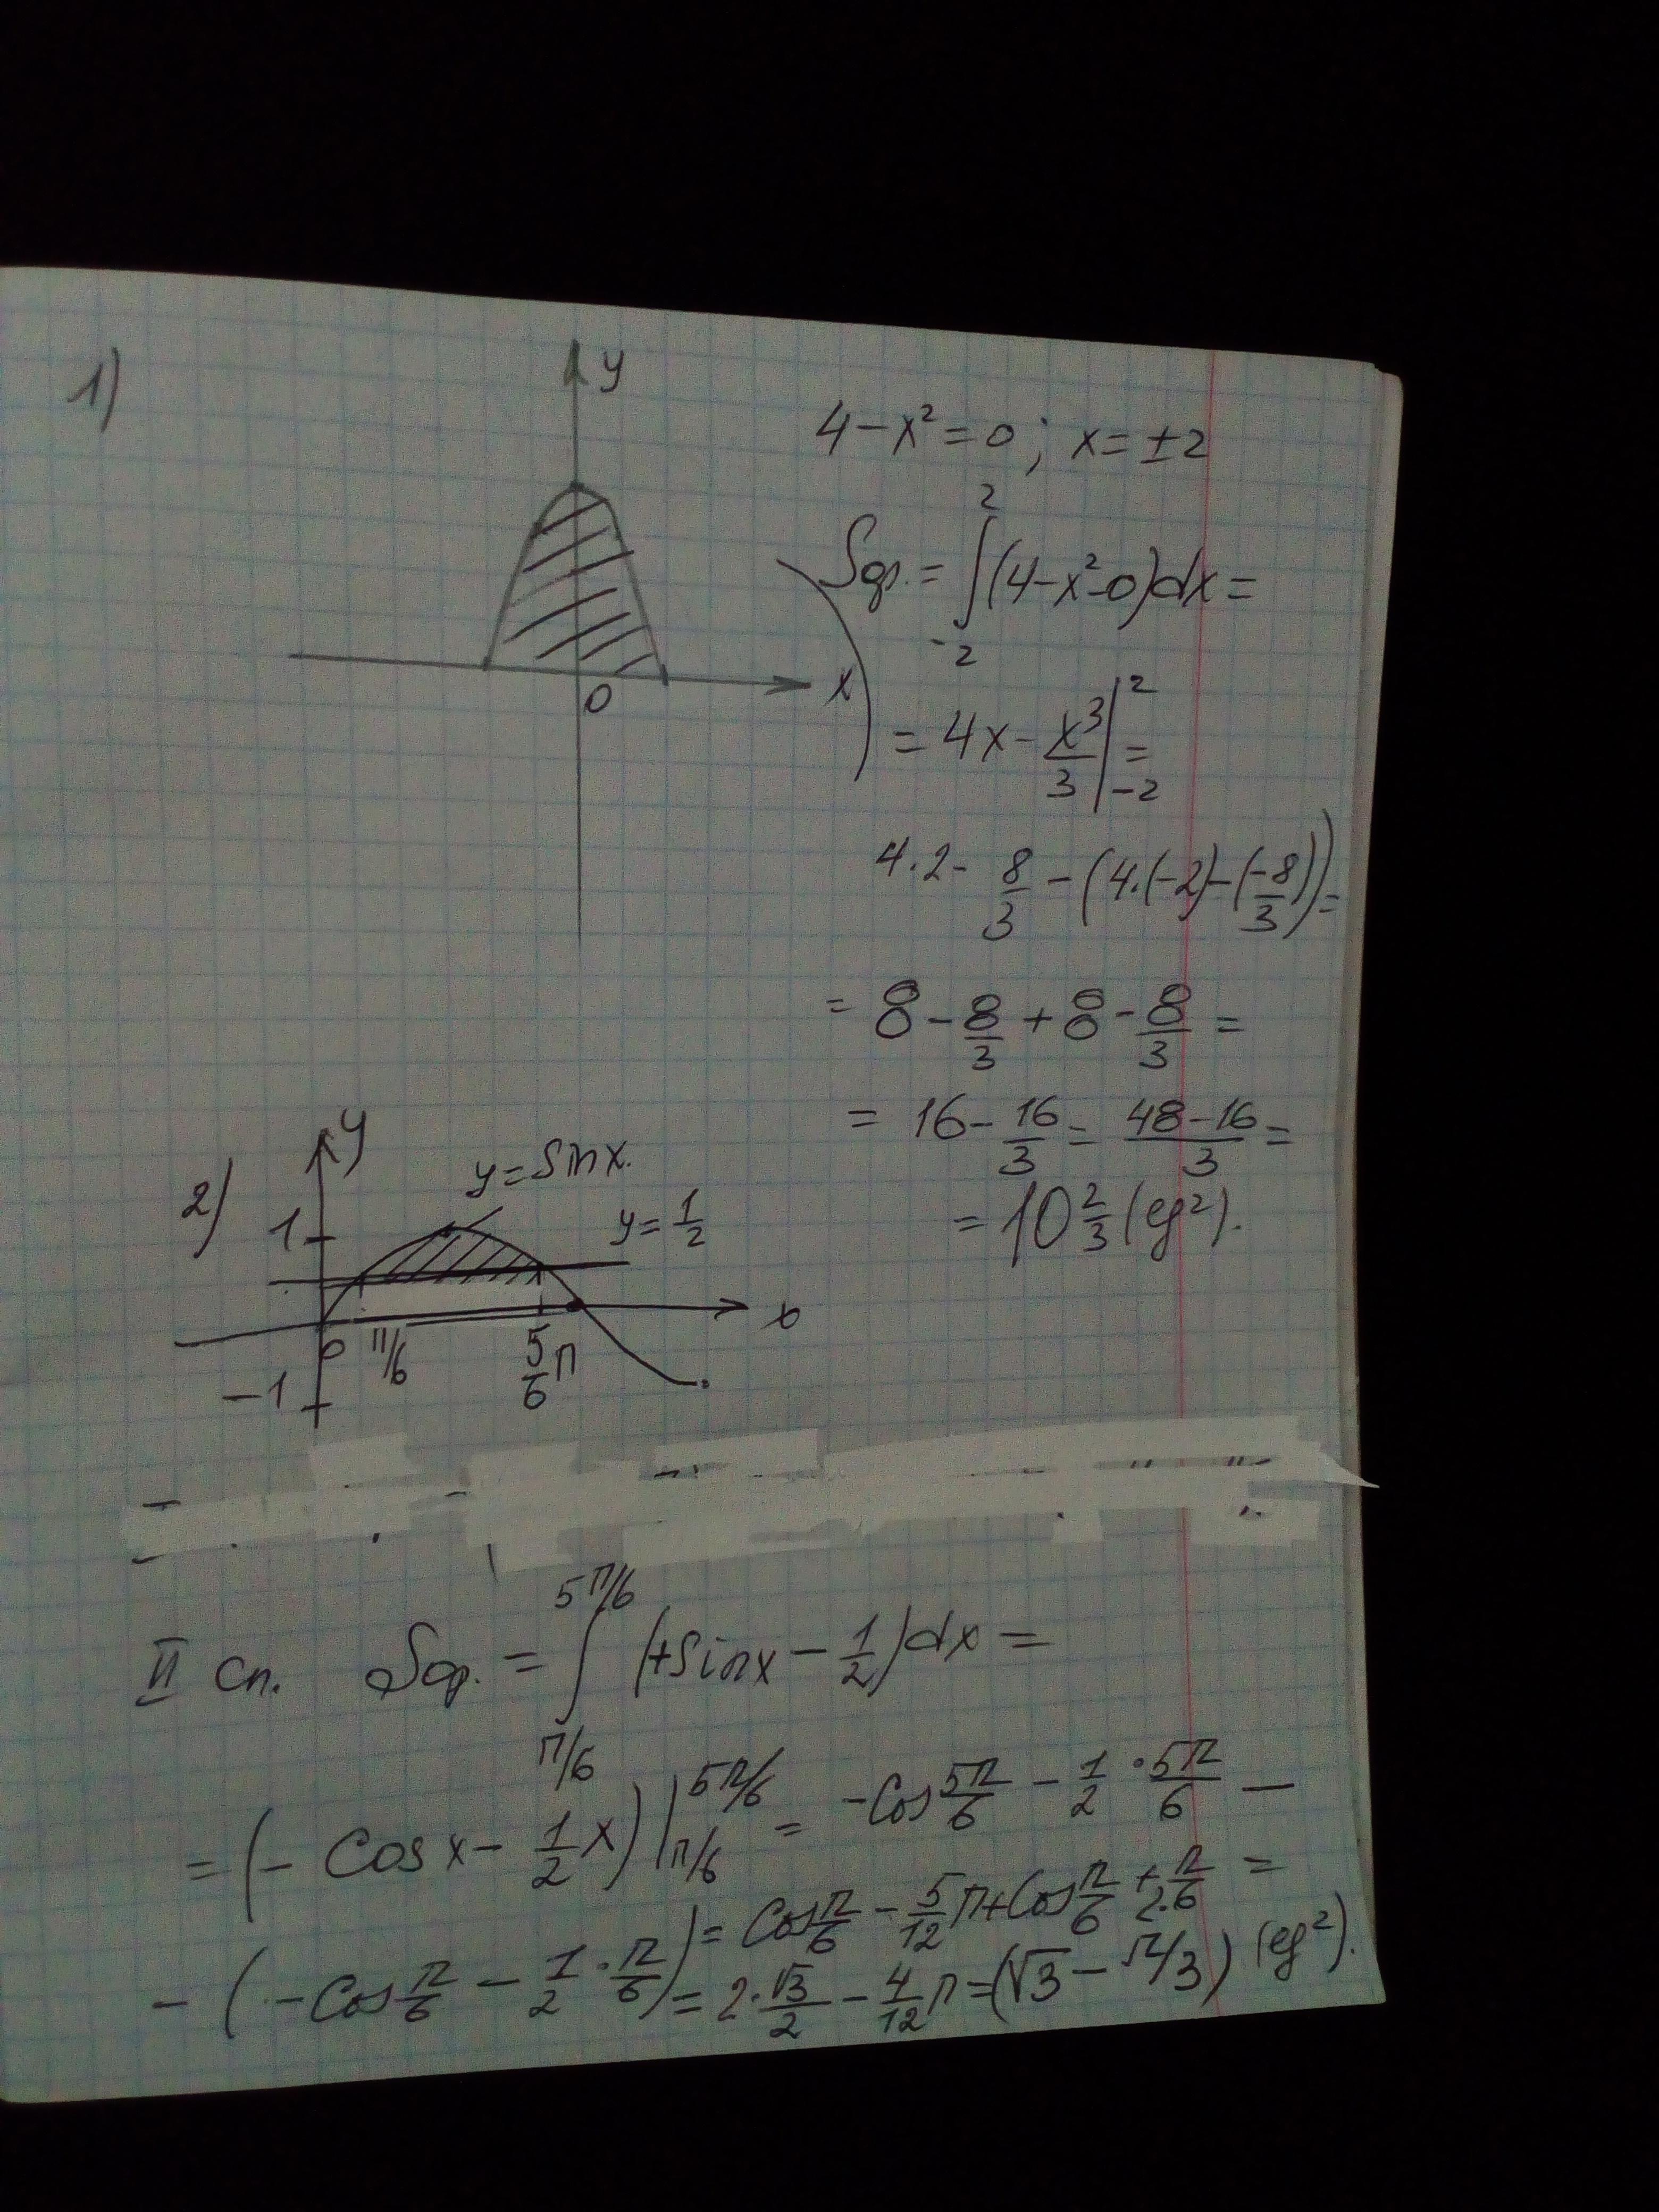 1)
y
x
0
4-x²=0; x=±2
Sф.= ∫₋₂² (4-x²-0)dx=
= 4x- x³/3 |₋₂² =
4·2- 8/3 -(4·(-2)-(-8/3))=
= 8- 8/3 +8- 8/3 =
= 16- 16/3 = 48-16/3 =
= 10 2/3 (ед²).
2)
y
y=Sinx.
1
y= 1/2
x
0
π/6
5/6 π
-1
II сп. Sф. = ∫_{π/6}^{5π/6} (+Sinx- 1/2)dx =
=(- Cosx- 1/2 x)|_{π/6}^{5π/6} = -Cos 5π/6 - 1/2 · 5π/6 -
-(-Cos π/6 - 1/2 · π/6)= Cos π/6 - 5/12 π+Cos π/6 + π/2·6 =
= 2· √3/2 - 4/12 π=(√3-π/3) (ед²).